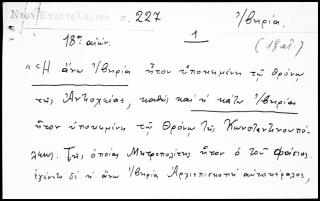 Νέον Επιστολάριον σ. 227
Ἰβηρία.
18ου αἰών.
1
(18αἰ)
«Ἡ ἄνω Ἰβηρία ἦτον ὑποκειμένη τῷ θρόνῳ
τῆς Ἀντιοχείας, καθὼς καὶ ἡ κάτω Ἰβηρία
ἦτον ὑποκειμένη τῷ Θρόνῳ τῆς Κωνσταντινουπό-
λεως. Τῆς ὁποίας Μητροπολίτης ἦτον ὁ τοῦ Φάσιος.
ἐγένετο δὲ ἡ ἄνω Ἰβηρία Ἀρχιεπισκοπὴ αὐτοκέφαλος,